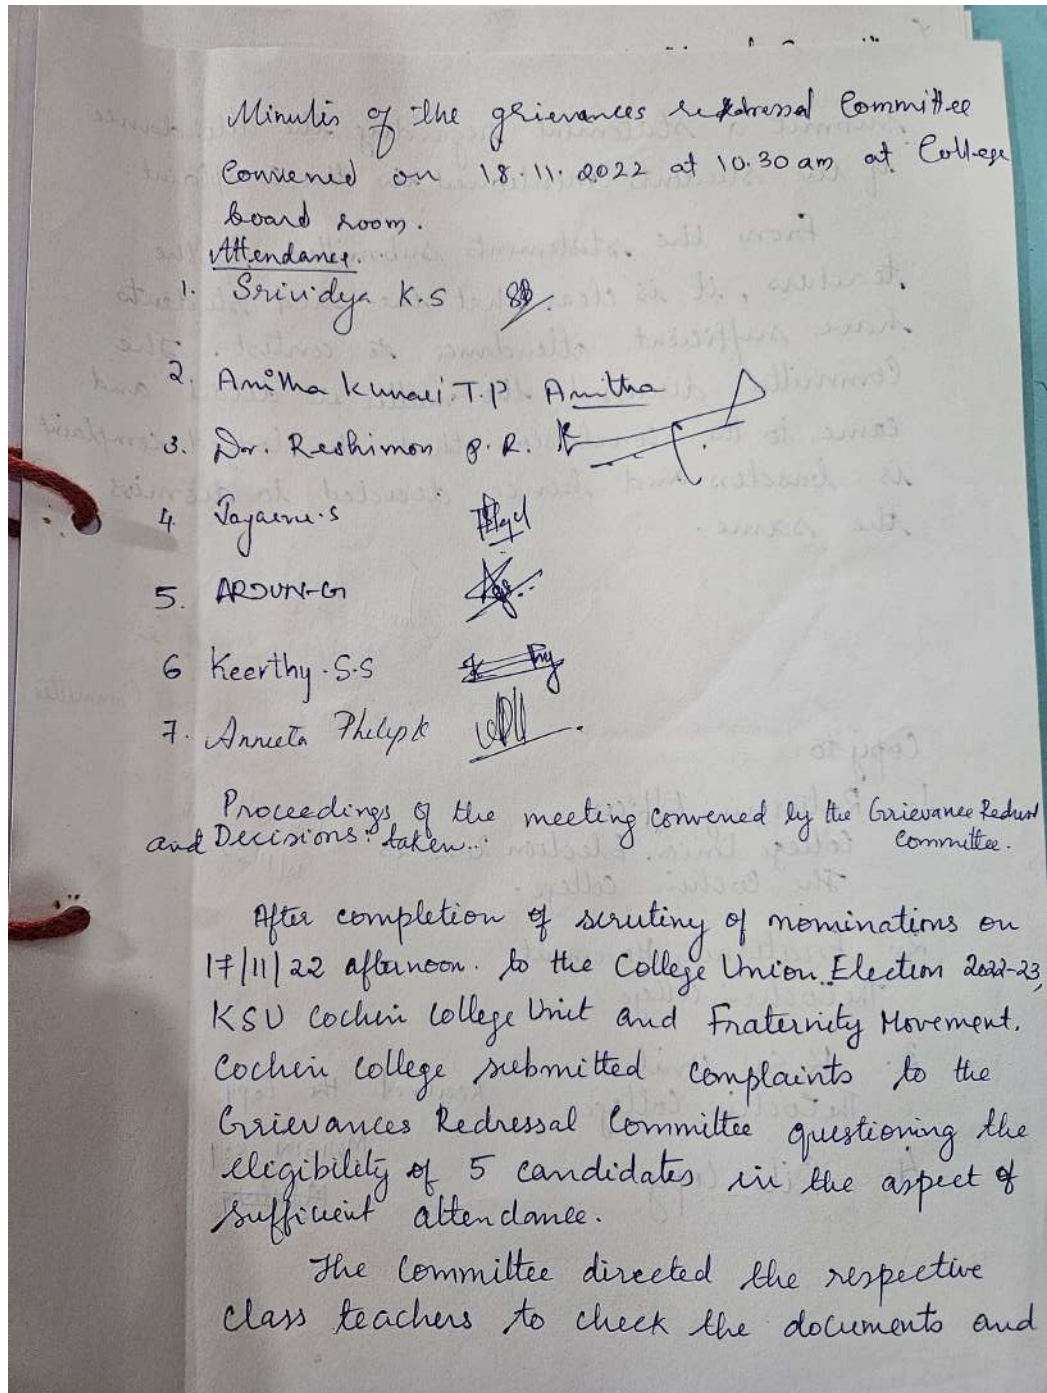 Minutes of the grievances redressal Committee
Convened on 18.11.2022 at 10.30 am at College
board room.
Attendance.
1. Srividya K.S
2. Anitha Kumari. T.P Anitha
3. Dr. Reshimon P.R.
4. Jayasree.S
5. ARJUN-G
6 Keerthy.S.S
7. Anneeta Philip K
Proceedings of the meeting convened by the Grievance Redressal
and Decisions taken... Committee.
After completion of scrutiny of nominations on
17/11/22 afternoon. to the College Union Election 2022-23,
KSU Cochin College Unit and Fraternity Movement.
Cochin College submitted complaints to the
Grievances Redressal Committee questioning the
eligibility of 5 candidates in the aspect of
sufficient attendance.
The Committee directed the respective
class teachers to check the documents and